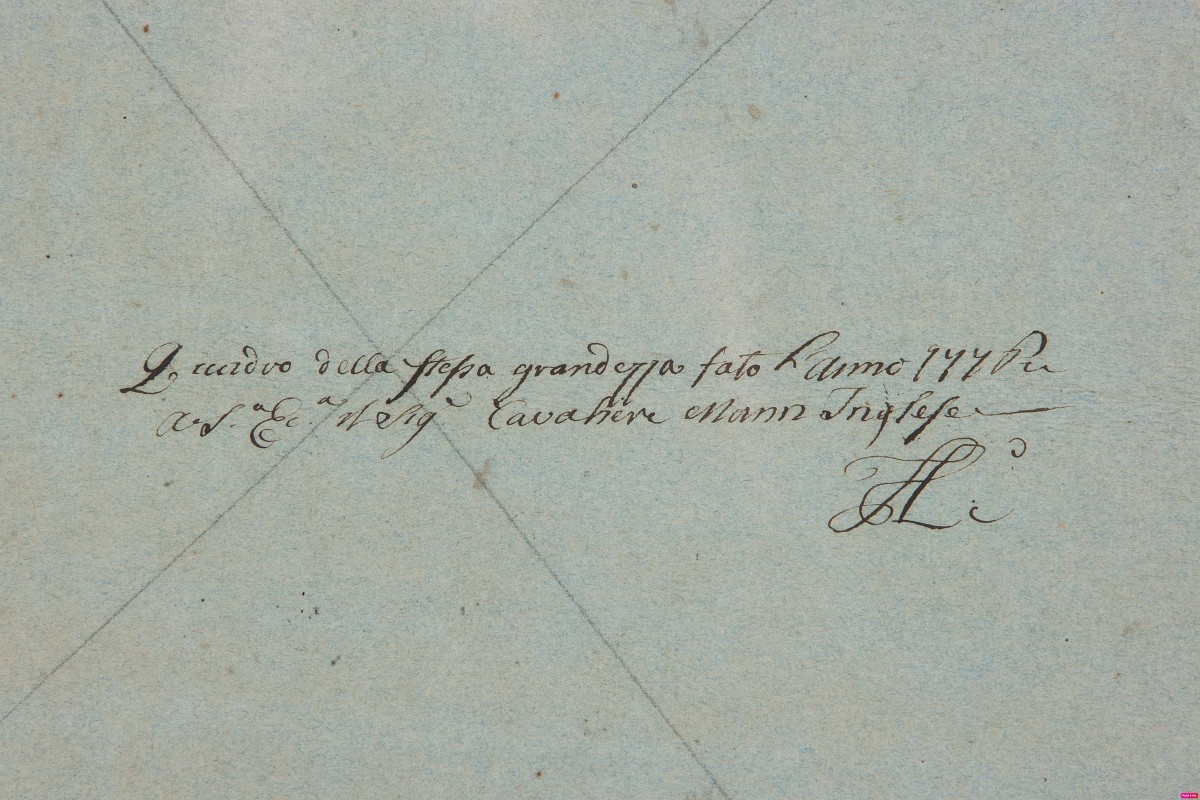 Quadro della stessa grandezza fato L'Anno 177
a S.ª Ec.ª il Sigʳ Cavaliere Mann Inglese